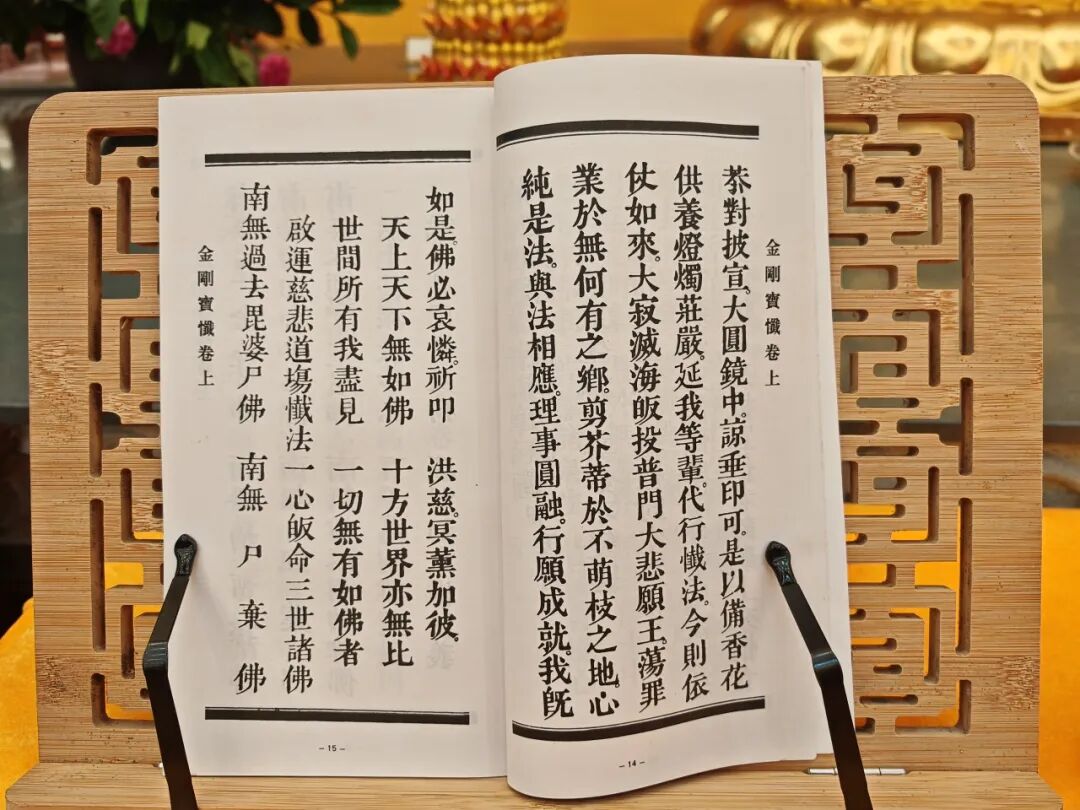 金剛寶懺卷上
恭對披宣。大圓鏡中。諒垂印可。是以備香花
供養燈燭莊嚴。延我等輩。代行懺法。今則依
仗如來。大寂滅海皈投普門大悲願王。蕩罪
業於無何有之鄉。剪芥蒂於不萌枝之地。心
純是法。與法相應。理事圓融。行願成就。我既
-14-
如是。佛必哀憐。祈叩 洪慈。冥薰加彼。
天上天下無如佛 十方世界亦無比
世間所有我盡見 一切無有如佛者
啟運慈悲道場懺法 一心皈命三世諸佛
南無過去毘婆尸佛 南無尸棄佛
金剛寶懺卷上
-15-